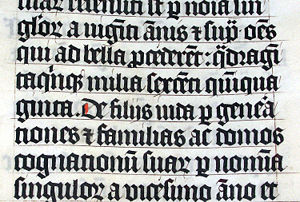 suar recensiti st p noīa sin
gľor a vigīti ānis ⁊ sup̄ oēs
qui ad bella ꝓcederēt: qͥdragī
taqͥnqͥꝫ milia sexcēti quīqua
ginta. De filijs iuda p gene͛a
tiones ⁊ familias ac domos
cognationū suaꝝ p nomīa
singuloꝝ a vicesimo āno et